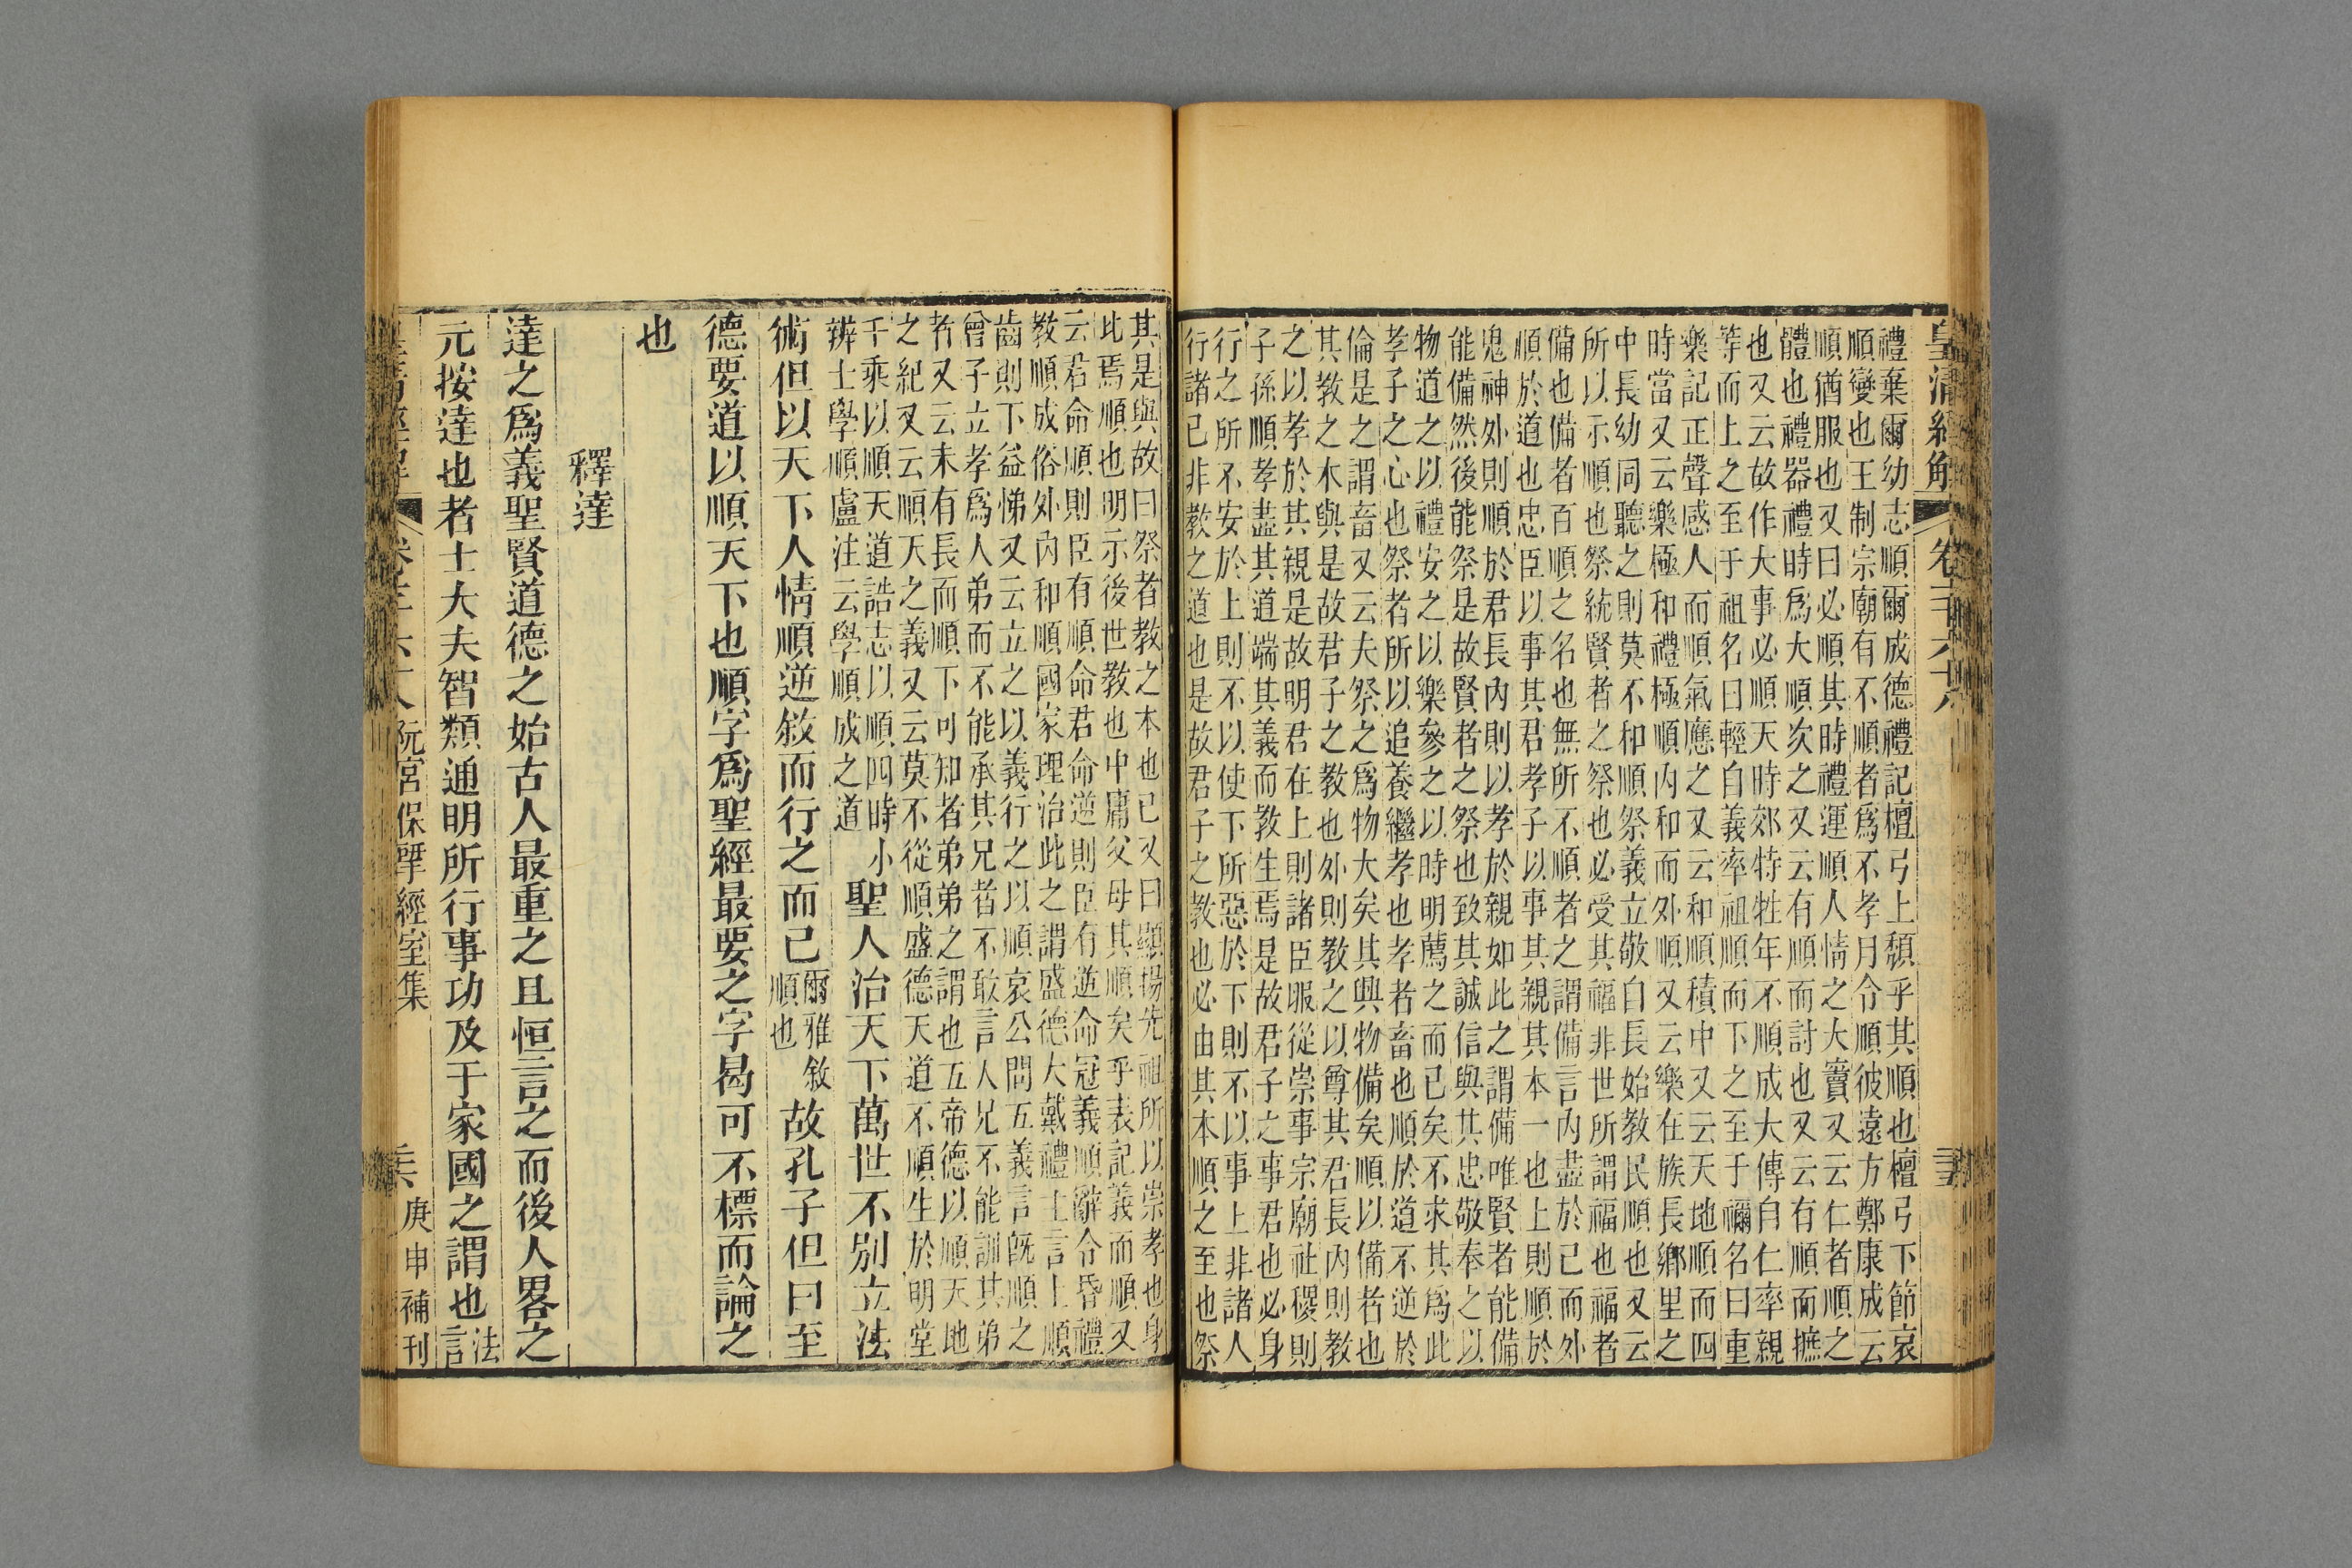 皇清經解 卷千六十八
禮棄爾幼志順爾成德禮記檀弓上頹乎其順也檀弓下節哀
順變也王制宗廟有不順者爲不孝月令順彼遠方鄭康成云
順猶服也又曰必順其時禮運順人情之大竇又云仁者順之
體也禮器禮時爲大順次之又云有順而討也又云有順而摭
也又云故作大事必順天時郊特牲年不順成大傳自仁率親
等而上之至于祖名曰輕自義率祖順而下之至于禰名曰重
樂記正聲感人而順氣應之又云和順積中又云天地順而四
時當又云樂極和禮極順內和而外順又云樂在族長鄉里之
中長幼同聽之則莫不和順祭義立敬自長始教民順也又云
所以示順也祭統賢者之祭也必受其福非世所謂福也福者
備也備者百順之名也無所不順者之謂備言內盡於己而外
順於道也忠臣以事其君孝子以事其親其本一也上則順於
鬼神外則順於君長內則以孝於親如此之謂備唯賢者能備
能備然後能祭是故賢者之祭也致其誠信與其忠敬奉之以
物道之以禮安之以樂參之以時明薦之而已矣不求其爲此
孝子之心也祭者所以追養繼孝也孝者畜也順於道不逆於
倫是之謂畜又云夫祭之爲物大矣其興物備矣順以備者也
其教之本與是故君子之教也外則教之以尊其君長內則教
之以孝於其親是故明君在上則諸臣服從崇事宗廟社稷則
子孫順孝盡其道端其義而教生焉是故君子之事君也必身
行之所不安於上則不以使下所惡於下則不以事上非諸人
行諸己非教之道也是故君子之教也必由其本順之至也祭
其是與故曰祭者教之本也已又曰顯揚先祖所以崇孝也身
比焉順也明示後世教也中庸父母其順矣乎表記義而順又
云君命順則臣有順命君命逆則臣有逆命冠義順辭令昏禮
教順成俗外內和順國家理治此之謂盛德大戴禮主言上順
齒則下益悌又云立之以義行之以順哀公問五義言旣順之
曾子立孝爲人弟而不能承其兄者不敢言人兄不能訓其弟
者又云未有長而順下可知者弟弟之謂也五帝德以順天地
之紀又云順天之義又云莫不從順盛德天道不順生於明堂
千乘以順天道誥志以順四時小
辨士學順盧注云學順成之道
聖人治天下萬世不別立法
術但以天下人情順逆敘而行之而已
爾雅敘
順也
故孔子但曰至
德要道以順天下也順字爲聖經最要之字曷可不標而論之
也
釋達
達之爲義聖賢道德之始古人最重之且恒言之而後人畧之
元按達也者士大夫智類通明所行事功及于家國之謂也
法
言
阮宮保揅經室集 庚申補刊